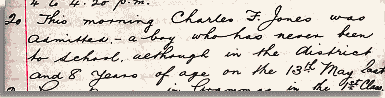 4 to 4.20 p.m.
20 This morning Charles F. Jones was
admitted, - a boy who has never been
to school, although in the district
and 8 Years of age on the 13th May last
in Grammar in the 1st Class